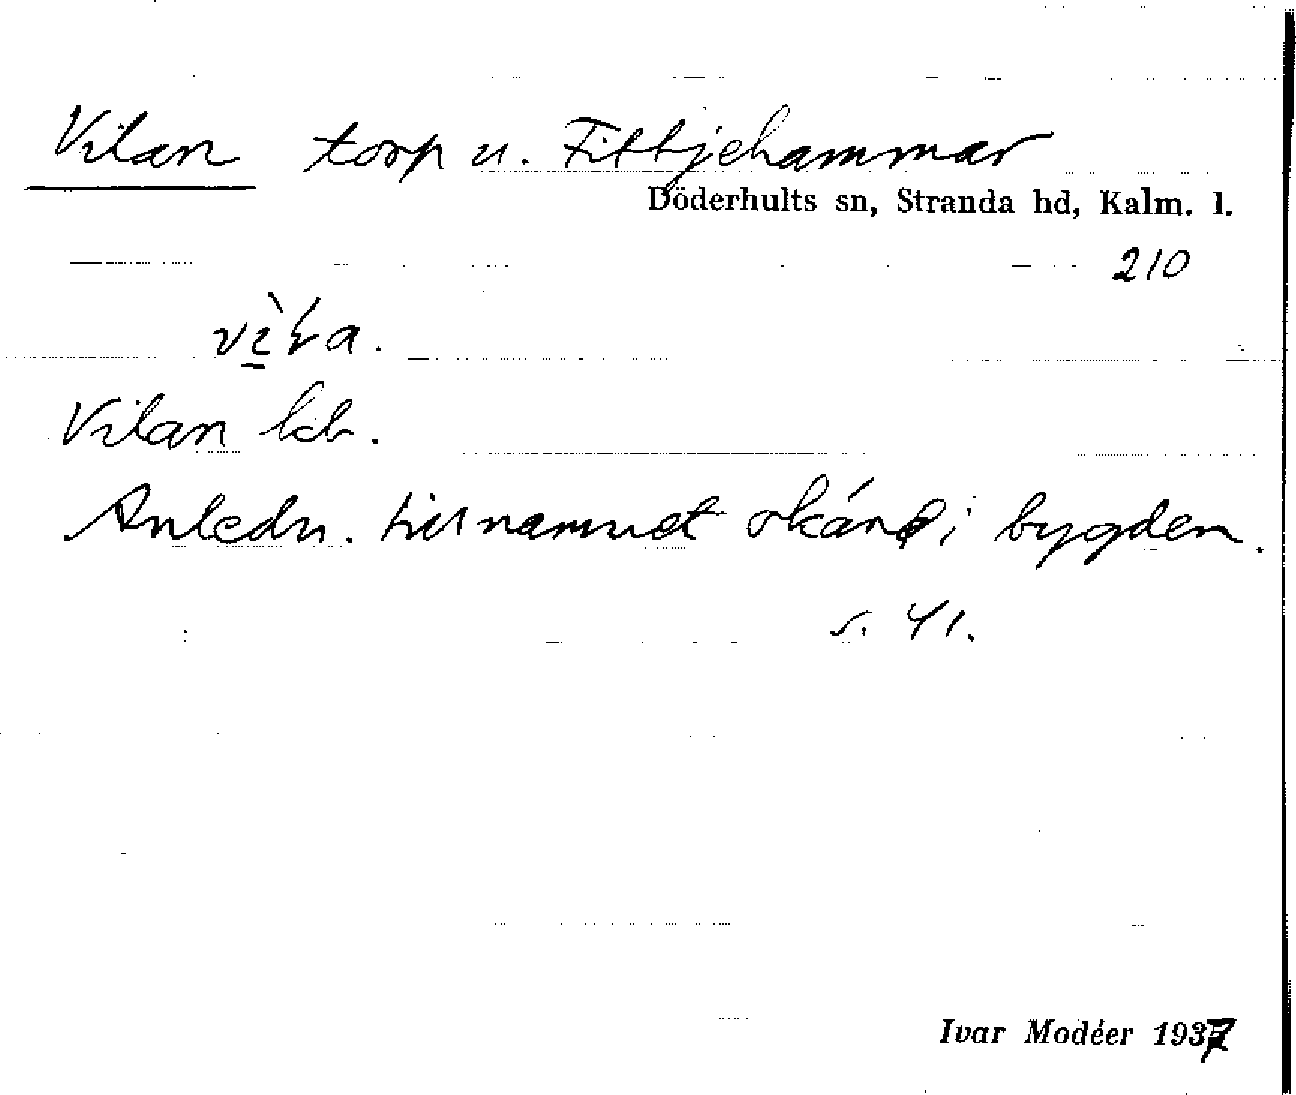 Vilan torp u. Fittjehammar
Döderhults sn, Stranda hd, Kalm. l.
210
Vilan
Anledn. till namnet okänd i bygden.
s. 41.
Ivar Modéer 1937